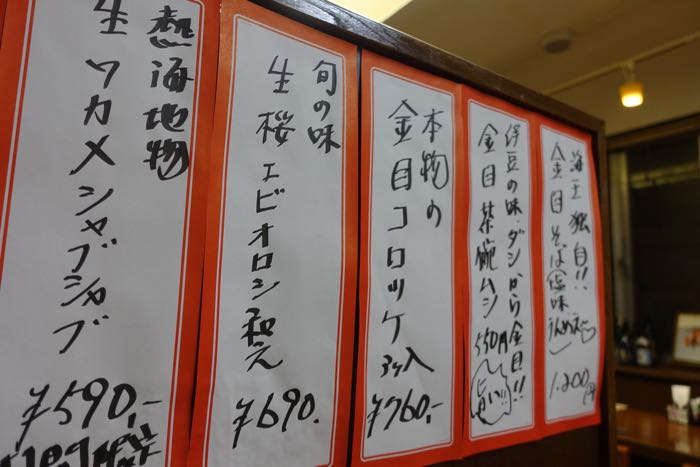 熱海地物
生ワカメシャブシャブ
¥590,-
旬の味
生桜エビオロシ和え
¥690.
本物の
金目コロッケ 3ヶ入
¥760,-
伊豆の味・ダシから金目!!
金目茶碗ムシ 550円
海王独自!!
金目そば塩味
1.200円